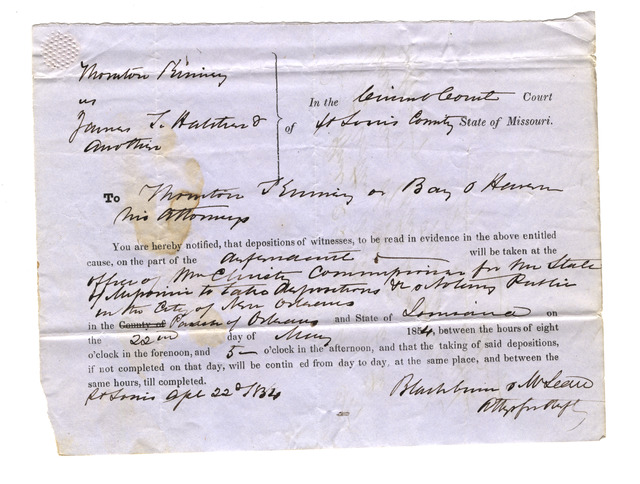 Thornton Kinney
vs
James T. Hatcher &
Another
In the Circuit Court Court
of St Louis County State of Missouri.
To Thornton Kinney or Bay
his Attorneys
You are hereby notified, that depositions of witnesses, to be read in evidence in the above entitled
cause, on the part of the defendant will be taken at the
office of Wm Christy Commissioner for the State
of Missouri to take depositions & a Notary Public
in the City of New Orleans
in the County of Parish of Orleans and State of Louisiana on
the 22nd day of May 1854, between the hours of eight
o'clock in the forenoon, and 5 o'clock in the afternoon, and that the taking of said depositions,
if not completed on that day, will be contin ed from day to day, at the same place, and between the
same hours, till completed.
St Louis Apl 22d 1854
Blackburn &
Attys for Deft